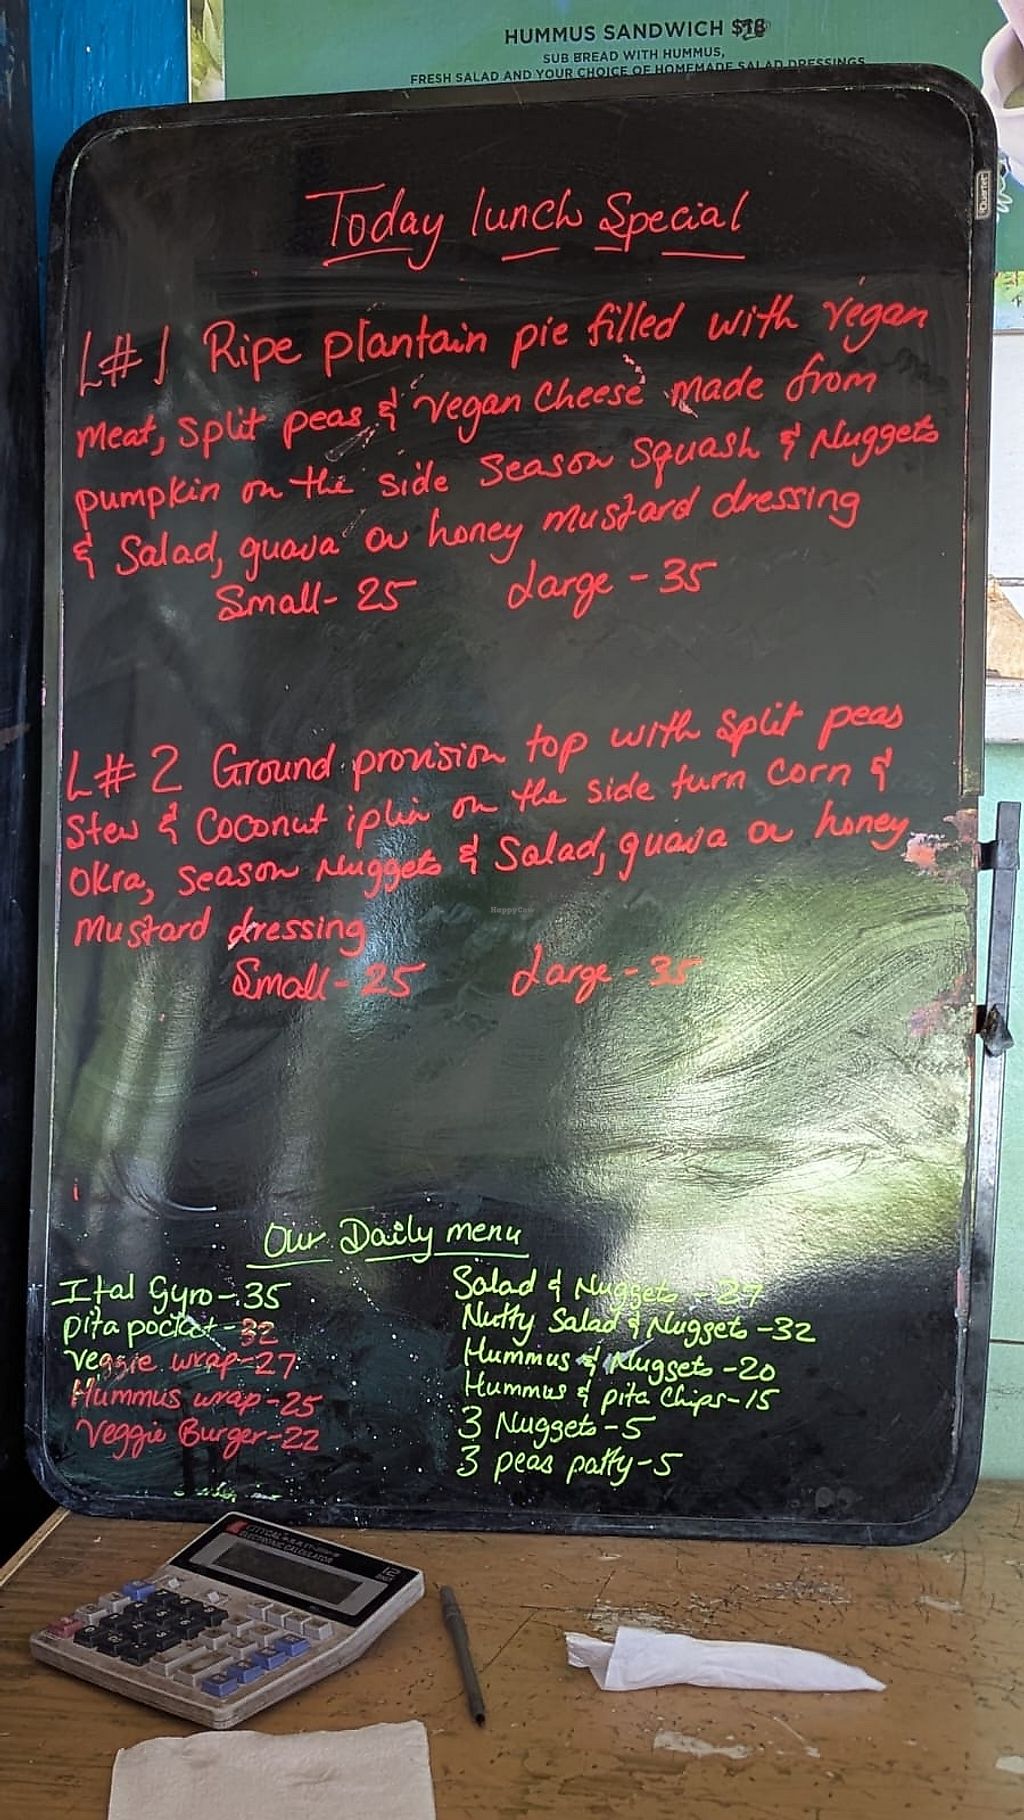 HUMMUS SANDWICH
SUB BREAD WITH HUMMUS,
FRESH SALAD AND YOUR CHOICE OF HOMEMADE SALAD DRESSINGS
Quartet
Today lunch Special
L#1 Ripe plantain pie filled with vegan
meat, split peas & vegan cheese made from
pumpkin on the side Season Squash & Nuggets
& Salad, guava or honey mustard dressing
Small- 25 Large - 35
L# 2 Ground provision top with split peas
Stew & Coconut on the side turn corn &
Okra, season Nuggets & Salad, guava or honey
Mustard dressing
Small - 25 Large - 35
HappyCow
Our Daily menu
Ital Gyro - 35
pita pocket - 32
Veggie wrap - 27
Hummus wrap - 25
Veggie Burger - 22
Salad & Nuggets - 27
Nutty Salad & Nuggets - 32
Hummus & Nuggets - 20
Hummus & pita Chips - 15
3 Nuggets - 5
3 peas patty - 5
ELECTRONIC CALCULATOR